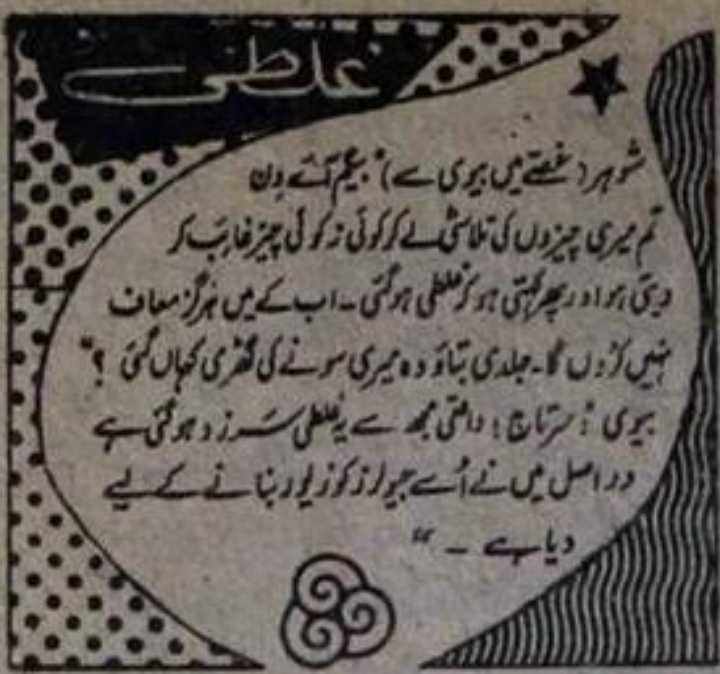 غلطی
شوہر (غصّے میں بیوی سے) "بیگم آئے دن
تم میری چیزوں کی تلاشی لے کر کوئی نہ کوئی چیز غائب کر
دیتی ہو اور پھر کہتی ہو کہ غلطی ہو گئی۔ اب کے میں ہرگز معاف
نہیں کروں گا۔ جلدی بتاؤ وہ میری سونے کی گھڑی کہاں گئی ؟"
بیوی : "سرتاج ! واقعی مجھ سے یہ غلطی سرزد ہو گئی ہے
در اصل میں نے اُسے جیولرز کو زیور بنانے کے لیے
دیا ہے ۔"